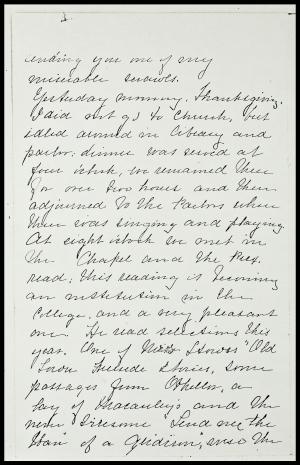 sending you one of my
miserable scrawls.
Yesterday morning, Thanksgiving,
I did not go to Church, but
idled around in library and
parlor. dinner was served at
four o'clock, we remained there
for over two hours and then
adjourned to the Parlors where
there was singing and playing
At eight o'clock we met in
the Chapel and the Pres.
read, this reading is becoming
an institution in the
College, and a very pleasant
one He read selections this
year. One of Mrs Stowe's "Old
Town Fireside Stories, some
passages from Othello, a
Lay of Macaulay's and the
new "Send me the
of a